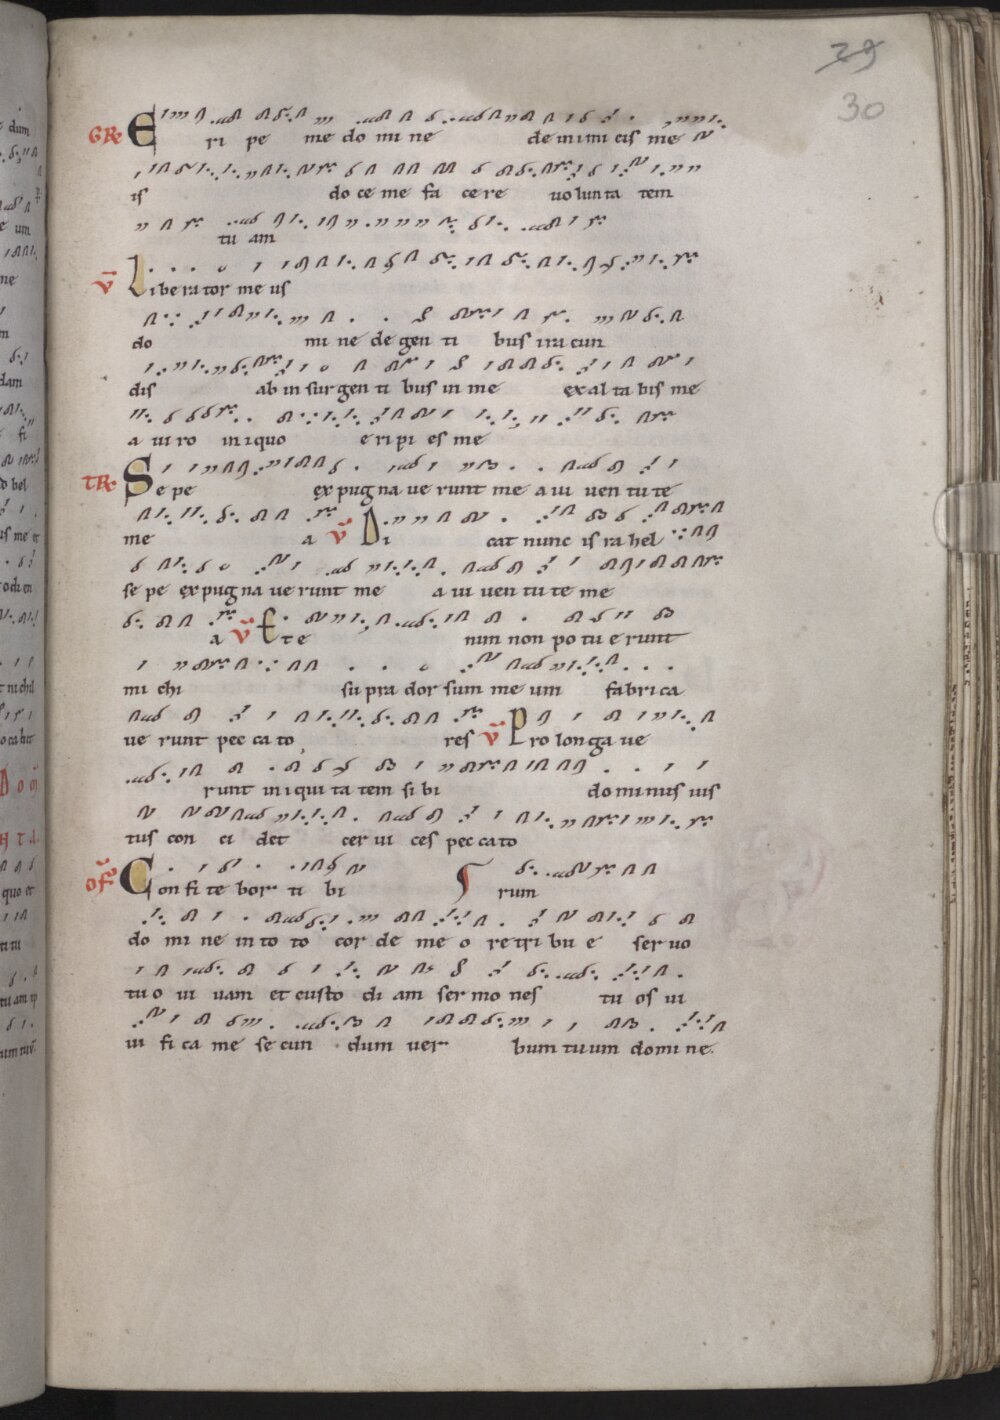 29
30
GR E ri pe me do mi ne de inimi cis me
is do ce me fa ce re uo lun ta tem
tu am
v̄ L i be ra tor me us
do mi ne de gen ti bus ira cun
dis ab in sur gen ti bus in me ex al ta bis me
a ui ro in i quo e ri pi es me
TR S e pe ex pug na ue runt me a iu uen tu te
me a v̄ D i cat nunc is ra hel
se pe ex pug na ue runt me a iu uen tu te me
a v̄ E t e nim non po tu e runt
mi chi su pra dor sum me um fa bri ca
ue runt pec ca to res v̄ P ro lon ga ue
runt in i qui ta tem si bi do mi nus ius
tus con ci det cer ui ces pec ca to
OF C on fi te bor ti bi rum
do mi ne in to to cor de me o re tri bu e ser uo
tu o ui uam et cus to di am ser mo nes tu os ui
ui fi ca me se cun dum uer bum tu um do mi ne.